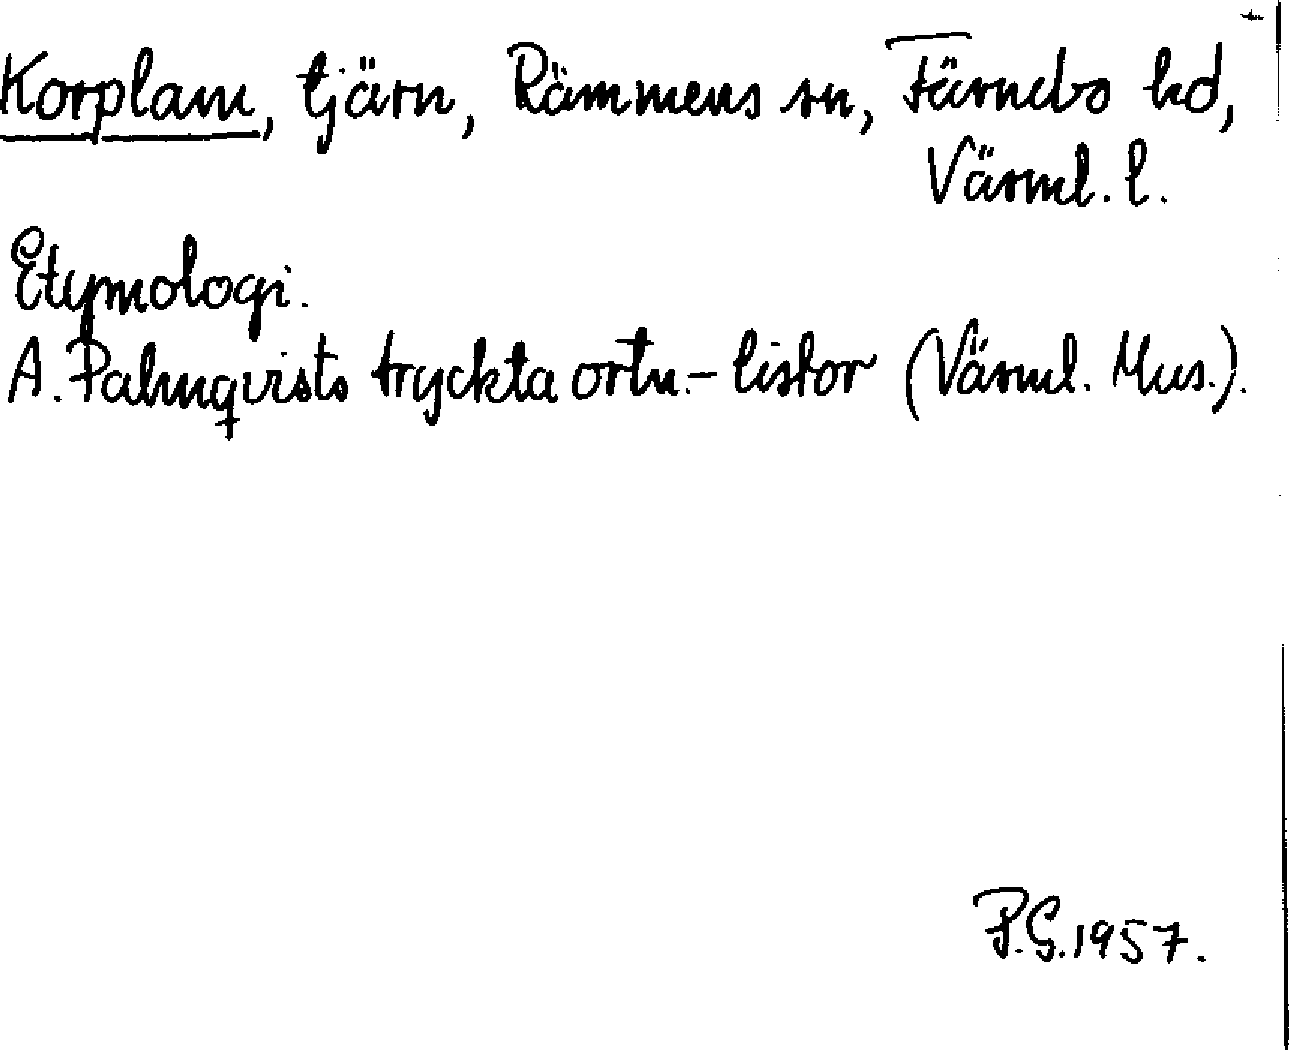 Korplam, tjärn, Rämmens sn, Färnebo hd,
Värml. l.
Etymologi.
A. Palmqvists tryckta ortn.-listor (Värml. Mus.).
P.G. 1957.